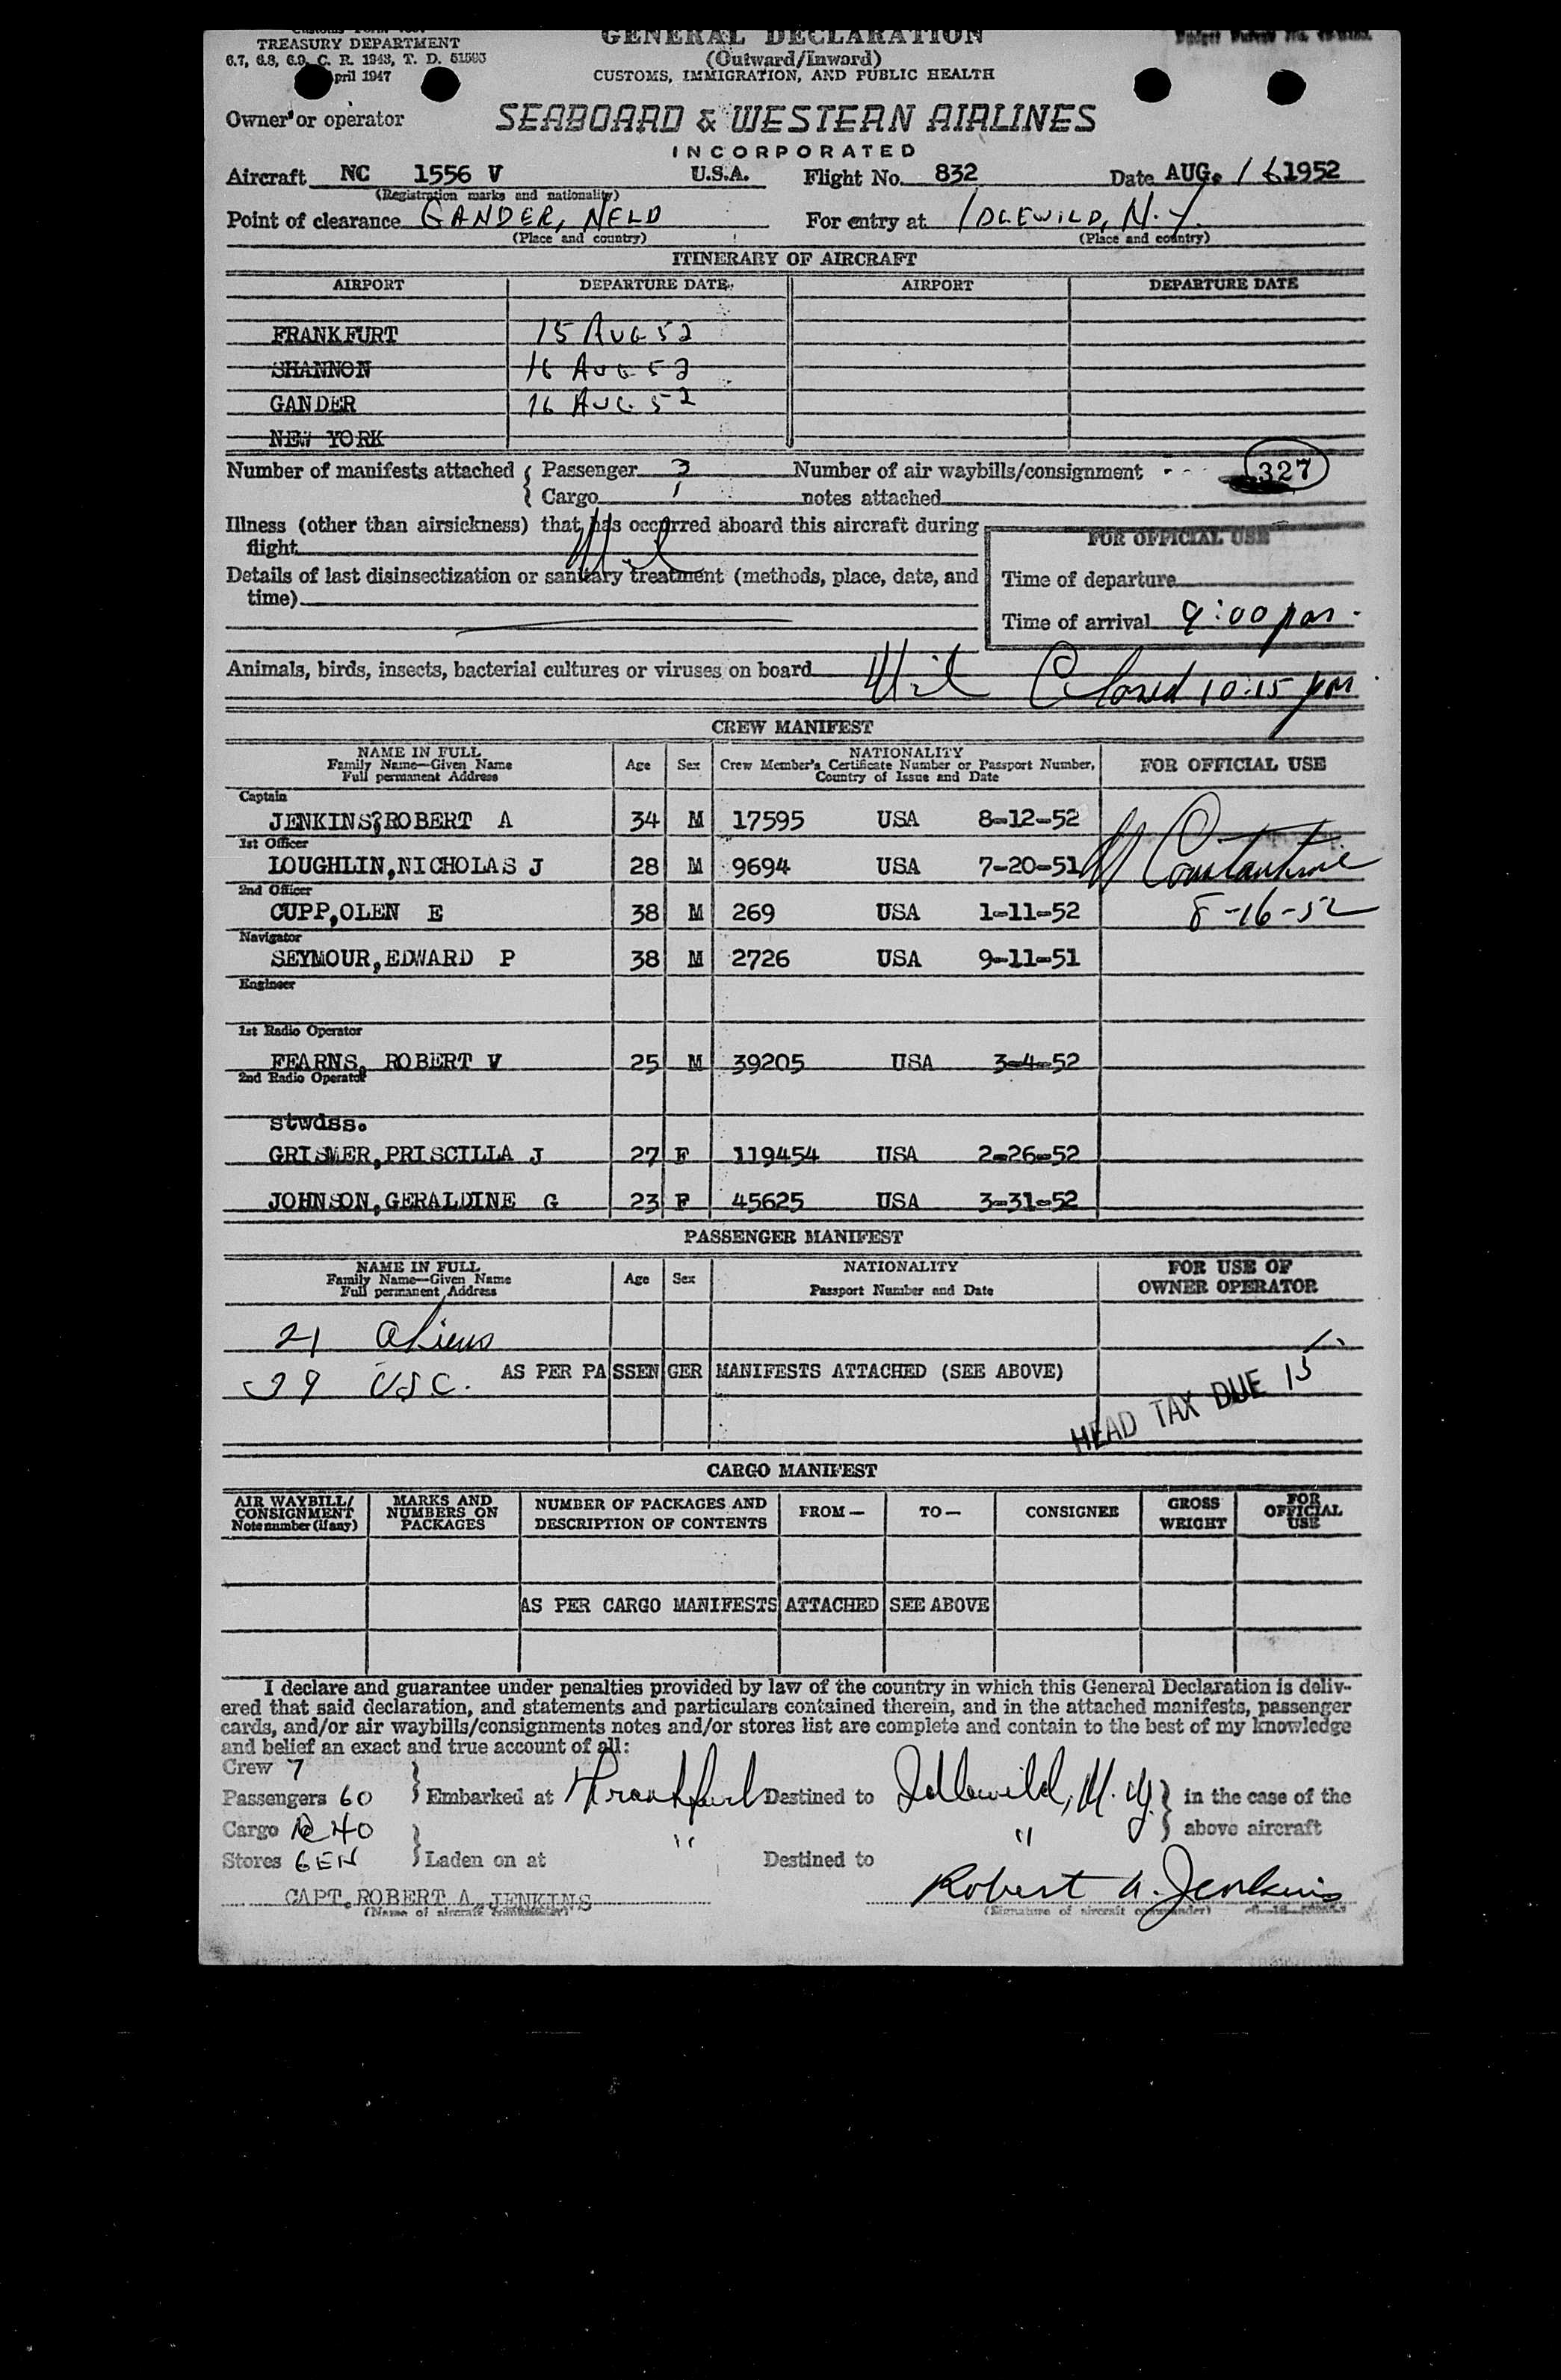 TREASURY DEPARTMENT
6.7, 6.8, 6.9, C. R. 1943, T. D. 51593
April 1947
GENERAL DECLARATION
(Outward/Inward)
CUSTOMS, IMMIGRATION, AND PUBLIC HEALTH
Owner or operator SEABOARD & WESTERN AIRLINES
INCORPORATED
Aircraft NC 1556 V U.S.A. Flight No. 832 Date AUG. 16 1952
(Registration marks and nationality)
Point of clearance GANDER, NFLD For entry at IDLEWILD, N.Y.
(Place and country) (Place and country)
ITINERARY OF AIRCRAFT
AIRPORT DEPARTURE DATE AIRPORT DEPARTURE DATE
FRANKFURT 15 AUG 52
SHANNON 16 AUG 52
GANDER 16 AUG 52
NEW YORK
Number of manifests attached { Passenger 3 Number of air waybills/consignment 327
Cargo 1 notes attached
Illness (other than airsickness) that has occurred aboard this aircraft during
flight Nil
FOR OFFICIAL USE
Details of last disinsectization or sanitary treatment (methods, place, date, and
time)
Time of departure
Time of arrival 9:00 pm.
Animals, birds, insects, bacterial cultures or viruses on board Nil Closed 10:15 pm
CREW MANIFEST
NAME IN FULL
Family Name—Given Name
Full permanent Address
Age Sex
NATIONALITY
Crew Member's Certificate Number or Passport Number,
Country of Issue and Date
FOR OFFICIAL USE
Captain
JENKINS, ROBERT A 34 M 17595 USA 8-12-52
1st Officer
LOUGHLIN,NICHOLAS J 28 M 9694 USA 7-20-51 Constantine
2nd Officer
CUPP,OLEN E 38 M 269 USA 1-11-52 8-16-52
Navigator
SEYMOUR,EDWARD P 38 M 2726 USA 9-11-51
Engineer
1st Radio Operator
FEARNS, ROBERT V 25 M 39205 USA 3-4-52
2nd Radio Operator
stwdss.
GRISMER,PRISCILLA J 27 F 119454 USA 2-26-52
JOHNSON,GERALDINE G 23 F 45625 USA 3-31-52
PASSENGER MANIFEST
NAME IN FULL
Family Name—Given Name
Full permanent Address
Age Sex
NATIONALITY
Passport Number and Date
FOR USE OF
OWNER OPERATOR
21 aliens
39 USC. AS PER PASSENGER MANIFESTS ATTACHED (SEE ABOVE)
HEAD TAX DUE 15
CARGO MANIFEST
AIR WAYBILL/
CONSIGNMENT
Note number (if any)
MARKS AND
NUMBERS ON
PACKAGES
NUMBER OF PACKAGES AND
DESCRIPTION OF CONTENTS
FROM—
TO—
CONSIGNEE
GROSS
WEIGHT
FOR
OFFICIAL
USE
AS PER CARGO MANIFESTS ATTACHED SEE ABOVE
I declare and guarantee under penalties provided by law of the country in which this General Declaration is deliv-
ered that said declaration, and statements and particulars contained therein, and in the attached manifests, passenger
cards, and/or air waybills/consignments notes and/or stores list are complete and contain to the best of my knowledge
and belief an exact and true account of all:
Crew 7
Passengers 60 } Embarked at Frankfurt Destined to Idlewild, N.Y. } in the case of the
Cargo " " above aircraft
Stores GEN } Laden on at Destined to
CAPT. ROBERT A. JENKINS Robert A. Jenkins
(Name of aircraft commander) (Signature of aircraft commander)